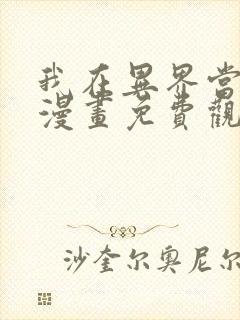 我在異界當
漫畫免費觀
沙奎尔奥尼尔